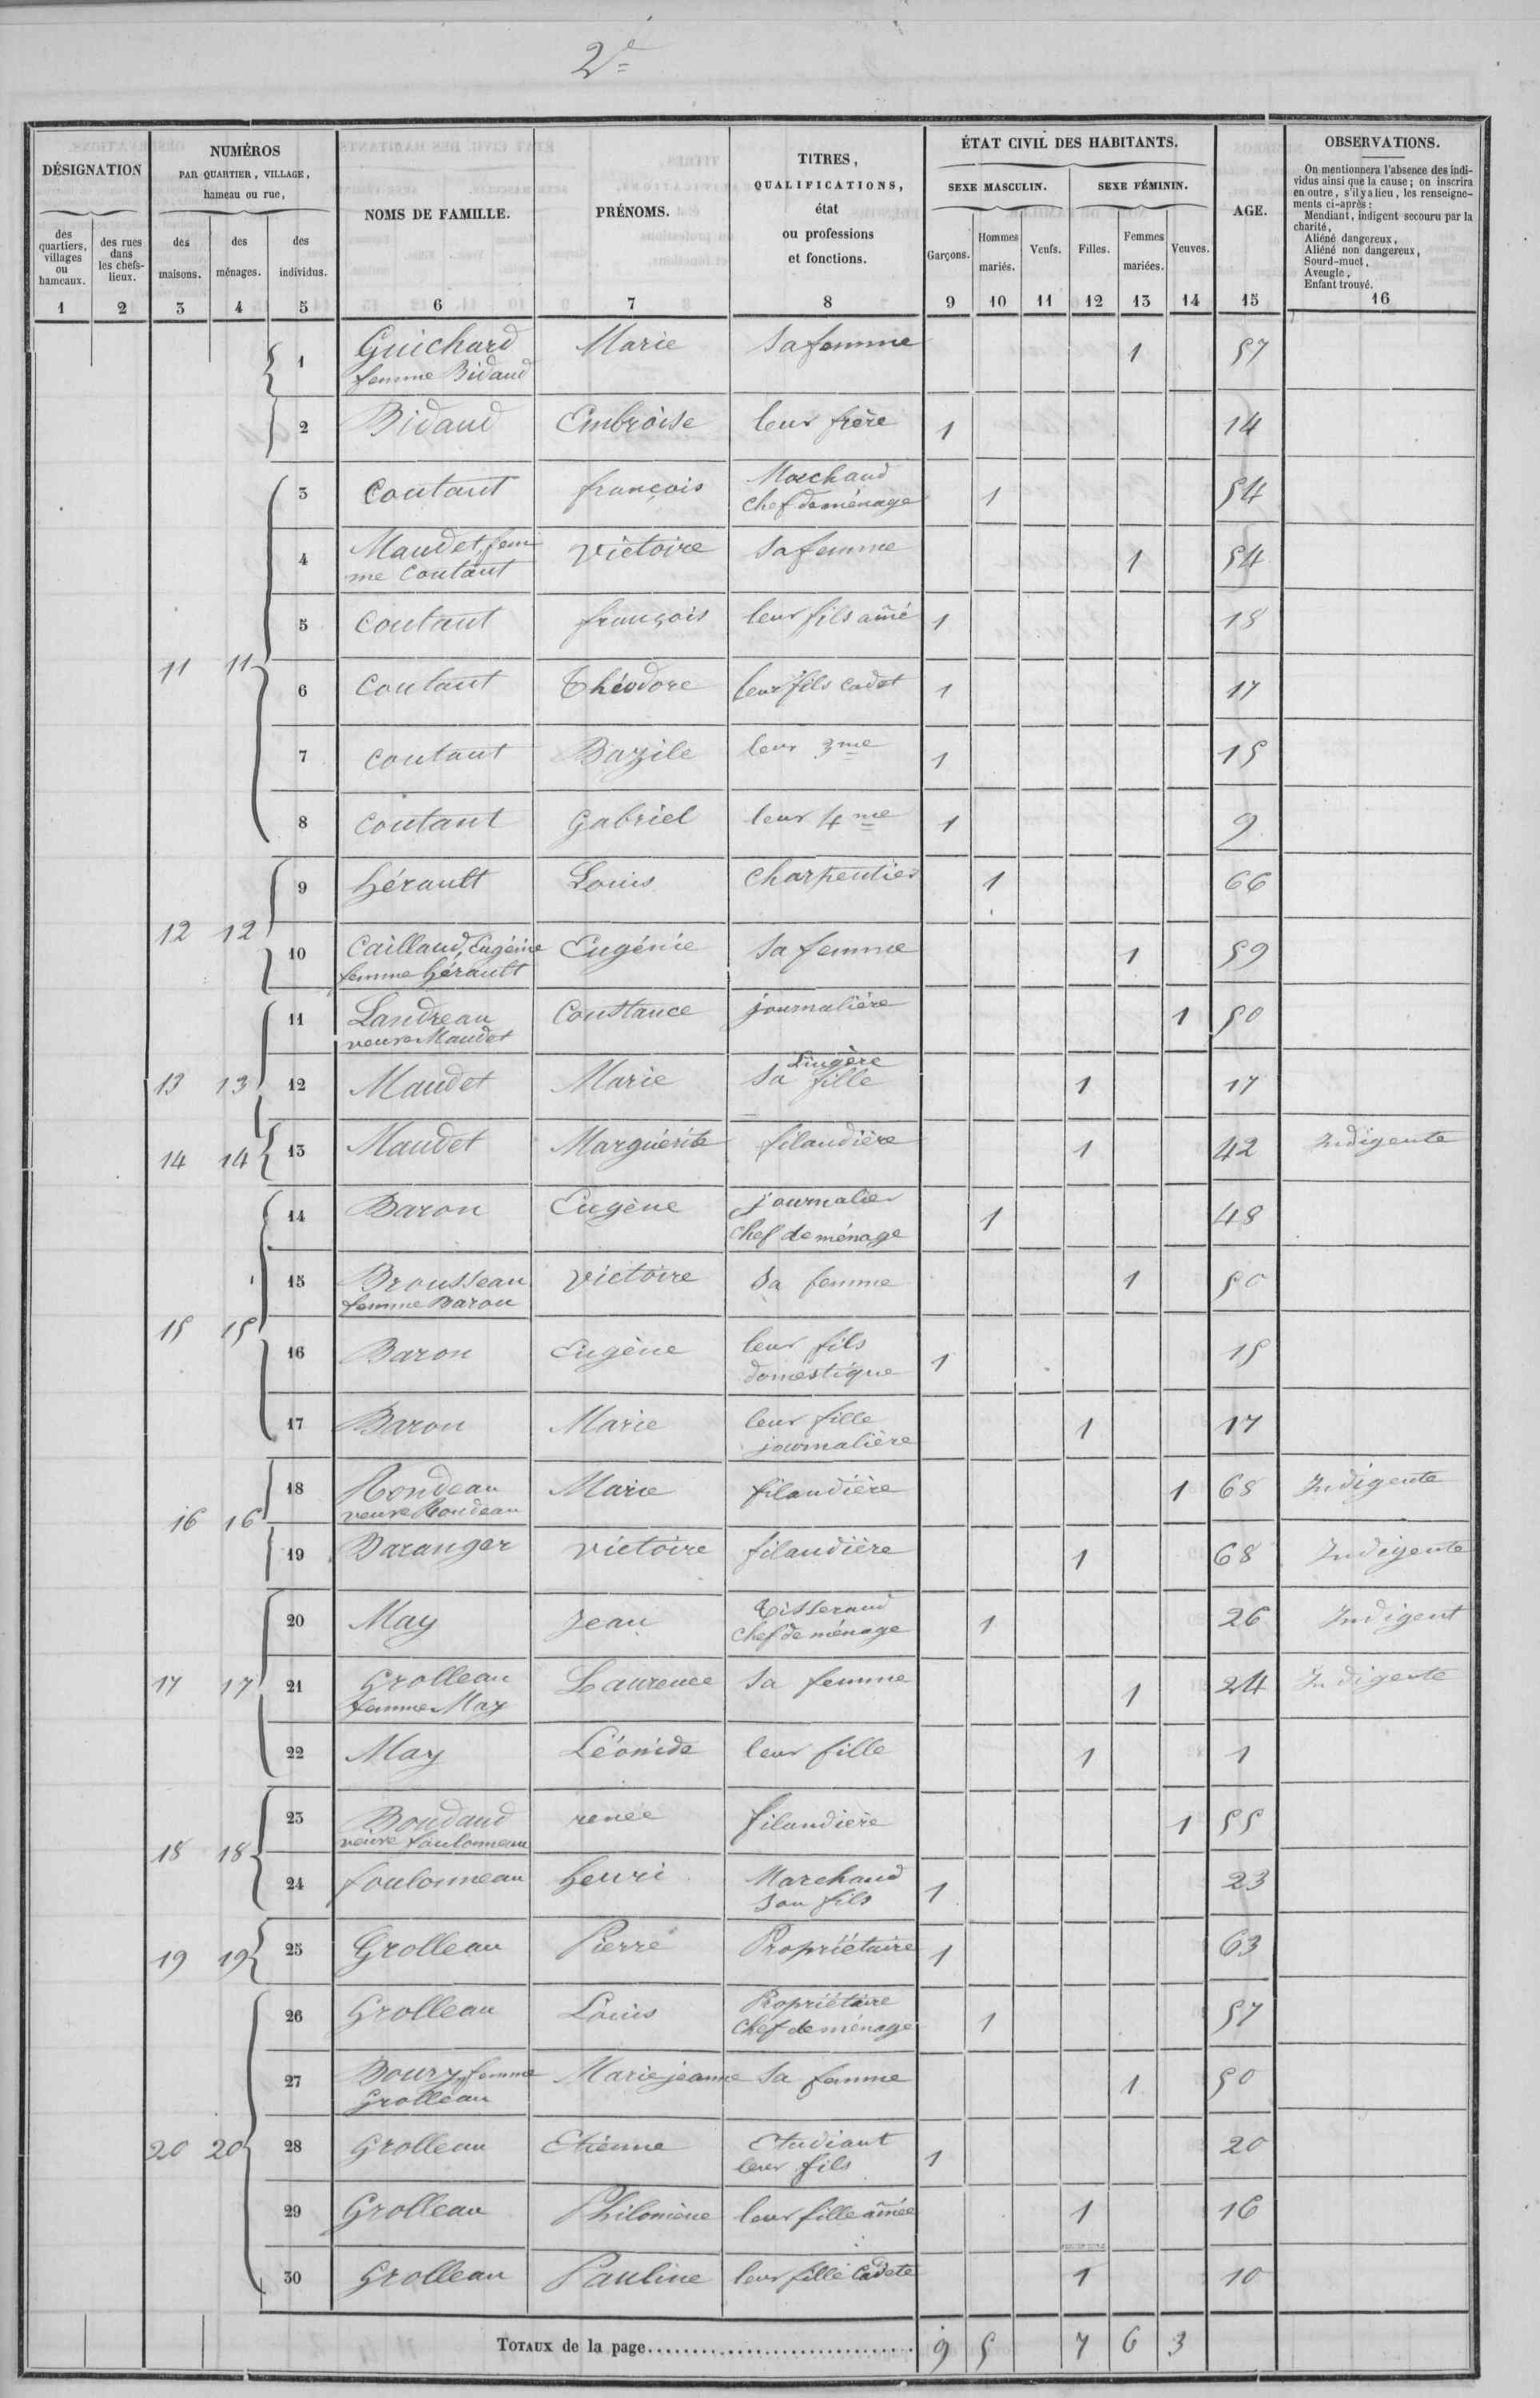 2e
DÉSIGNATION
NUMÉROS
PAR QUARTIER, VILLAGE,
hameau ou rue,
NOMS DE FAMILLE.
PRÉNOMS.
TITRES,
QUALIFICATIONS,
état
ou professions
et fonctions.
ÉTAT CIVIL DES HABITANTS.
SEXE MASCULIN.
SEXE FÉMININ.
AGE.
OBSERVATIONS.
On mentionnera l'absence des indi-
vidus ainsi que la cause; on inscrira
en outre, s'il y a lieu, les renseigne-
ments ci-après:
Mendiant, indigent secouru par la
charité,
Aliéné dangereux,
Aliéné non dangereux,
Sourd-muet,
Aveugle,
Enfant trouvé.
des quartiers, villages ou hameaux.
des rues dans les chefs-lieux.
des maisons.
des ménages.
des individus.
Garçons.
Hommes mariés.
Veufs.
Filles.
Femmes mariées.
Veuves.
1 2 3 4 5 6 7 8 9 10 11 12 13 14 15 16
1 Guichard Marie Sa femme 1 57
femme Bidaud
2 Bidaud Embroise leur frère 1 14
3 Coutant françois Marchand 1 54
chef de ménage
4 Maudet, fem Victoire Sa femme 1 54
me Coutant
5 Coutant françois leur fils aîné 1 18
11 11
6 Coutant Théodore leur fils cadet 1 17
7 Coutant Bazile leur 3me 1 15
8 Coutant Gabriel leur 4me 1 9
9 hérault Louis Charpentier 1 66
12 12
10 Caillaud, Eugénie Eugénie Sa femme 1 59
femme hérault
11 Landreau Constance journalière 1 50
veuve Maudet
Lingère
13 13 12 Maudet Marie Sa fille 1 17
14 14 13 Maudet Marguérite filandière 1 42 Indigente
14 Baron Eugène journalier 1 48
chef de ménage
15 Brousseau Victoire Sa femme 1 50
femme Baron
15 15
16 Baron Eugène leur fils 1 15
domestique
17 Baron Marie leur fille 1 17
journalière
18 Rondeau Marie filandière 1 68 Indigente
veuve Rondeau
16 16
19 Baranger Victoire filandière 1 68 Indigente
20 May Jean Tisserand 1 26 Indigent
chef de ménage
17 17 21 Grolleau Laurence Sa femme 1 24 Indigente
femme May
22 May Léonide leur fille 1 1
23 Boudaud renée filandière 1 55
veuve foulonneau
18 18
24 foulonneau henri Marchand 1 23
Son fils
19 19 25 Grolleau Pierre Propriétaire 1 63
26 Grolleau Louis Propriétaire 1 57
Chef de ménage
27 Boury, femme Marie jeanne Sa femme 1 50
Grolleau
20 20 28 Grolleau Etienne Etudiant 1 20
leur fils
29 Grolleau Philomène leur fille aînée 1 16
30 Grolleau Pauline leur fille Cadete 1 10
TOTAUX de la page 9 5 7 6 3